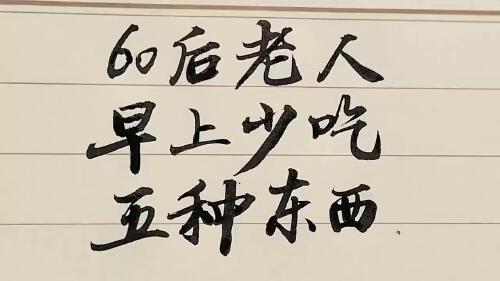 60后老人
早上少吃
五种东西.